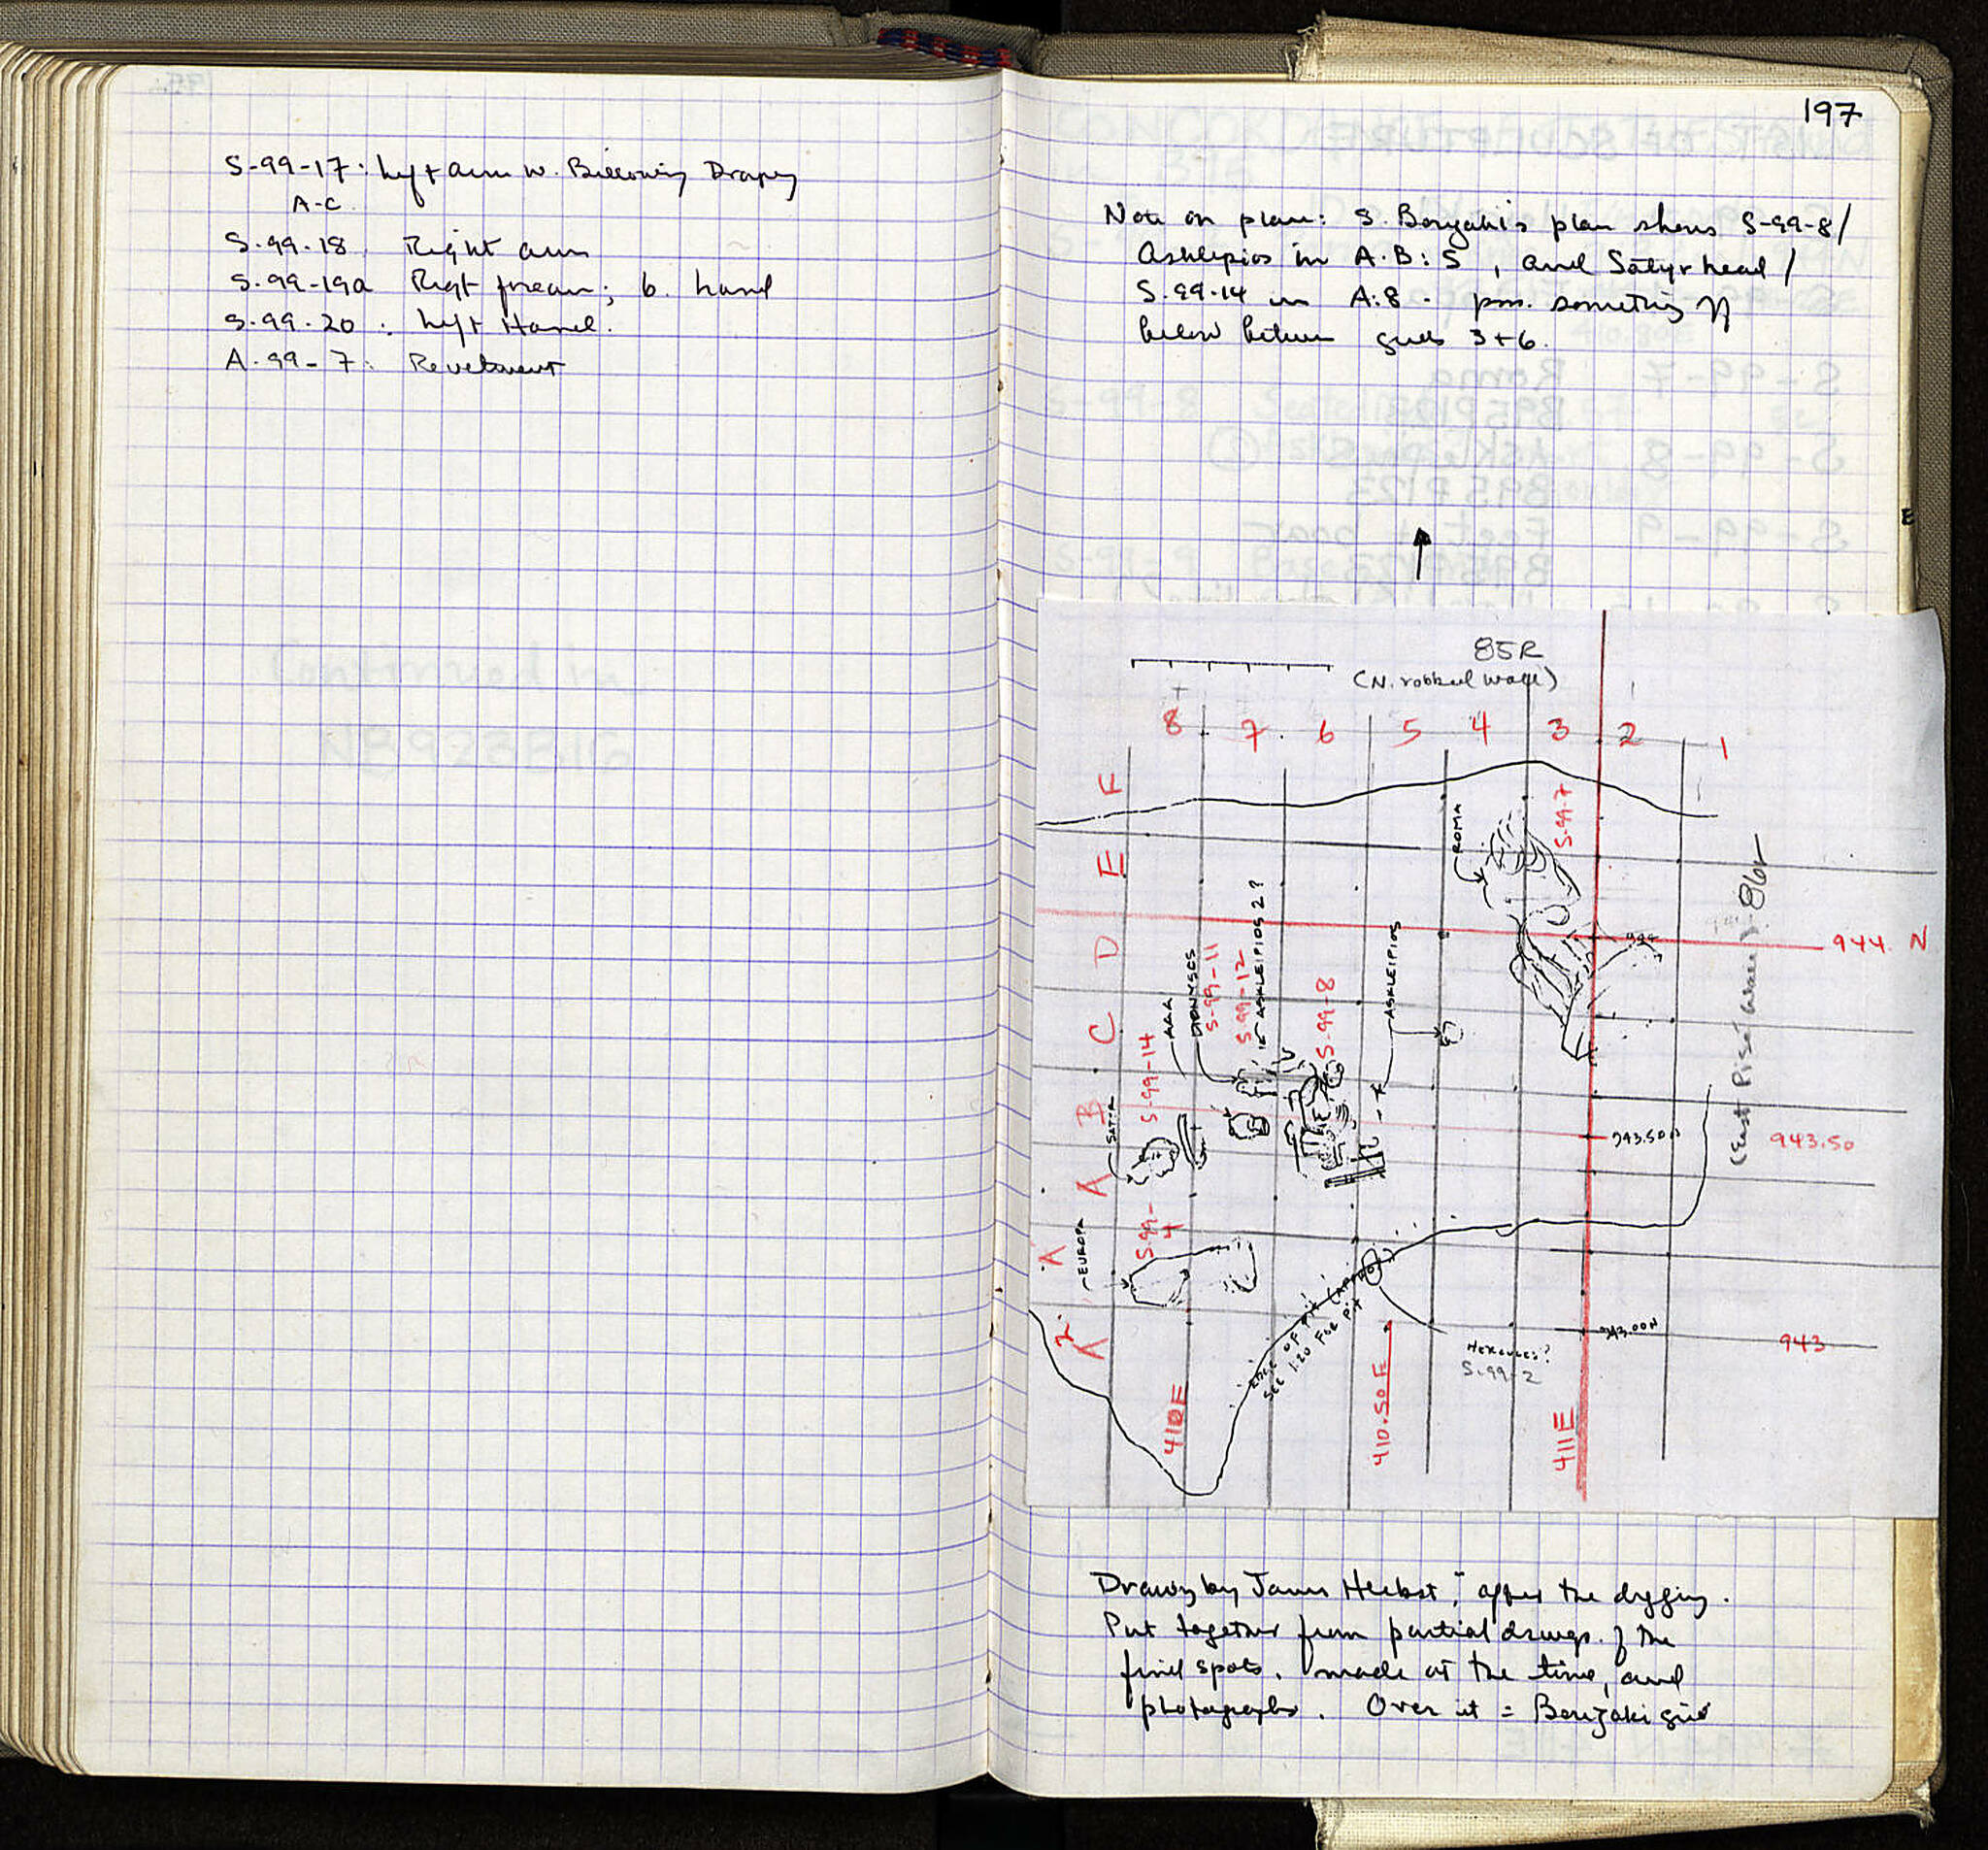 S-99-17: Left arm w. Billowing Drapery
A-C
S-99-18 Right arm
S-99-19a Right forearm; b. hand
S-99-20: Left Hand.
A-99-7: Revetment
197
Note on plan: S. Bouzaki's plan shows S-99-8/
Asklepios in A.B:5, and Satyr head/
S-99-14 in A:8 - pos. something
below between 3+6.
85R
(N. robbed wall)
8 7 6 5 4 3 2 1
F
E
D
C
B
A
A
A
ROMA
S-99-7
86r
944. N
944
ASKLEIPIOS 2?
ASKLEIPIOS
DIONYSOS
S-99-11
S-99-12
S-99-8
S-99-14
SATYR
943.50N
943.50
(East Pisé
EUROPA
S-99-
4
943.00N
943
EDGE OF PIT (APPROX)
SEE 1:20 FOR PIT
HERCULES?
S-99-2
410E
410.50E
411E
Drawing by James Herbst, after the digging.
Put together from partial drwgs. of the
find spots, made at the time, and
photographs. Over it = Bouzaki grid